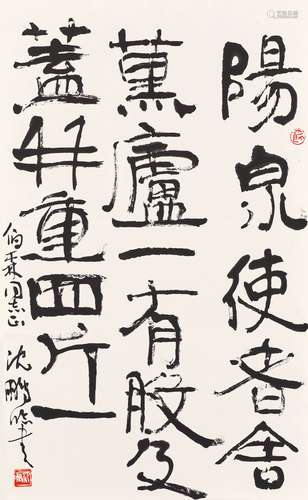 陽泉使者舍
薰廬一有般及
蓋并重四斤一
伯霖同志正 沈鵬臨書